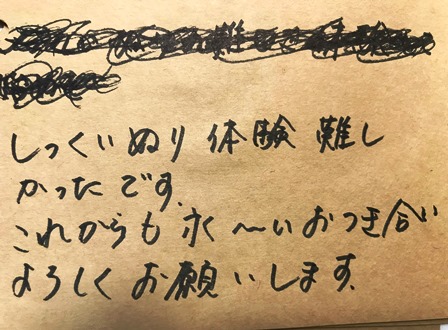 しっくいぬり 体験 難し
かったです。
これからも 永〜いおつき合い
よろしく お願いします。